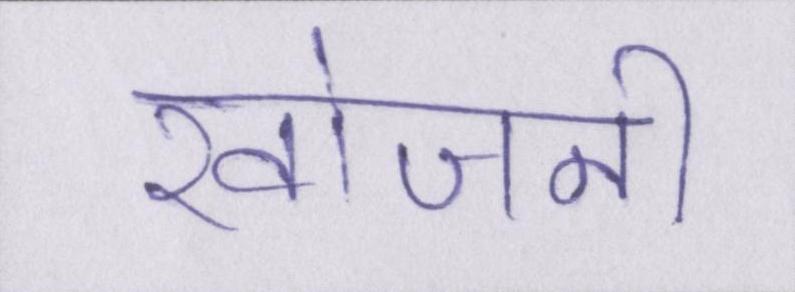 खोजनी